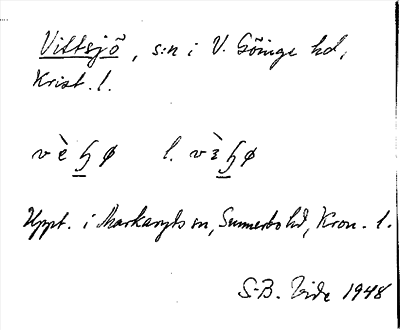 Vittsjö, s:n i V. Göinge hd,
Krist. l.
Uppt. i Markaryds sn, Sunnerbo hd, Kron. l.
S-B. Vide 1948